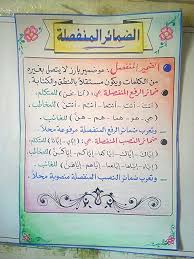 الضمائر المنفصلة
الضمير المنفصل: هو ضمير بارز لا يتصل بغيره
من الكلمات ويكون مستقلاً بالنطق والكتابة.
ضمائر الرفع المنفصلة هي: (أنا - نحن) للمتكلم.
(أنتَ - أنتِ - أنتما - أنتم - أنتن) للمخاطب.
(هو - هي - هما - هم - هن) للغائب.
وتعرب ضمائر الرفع المنفصلة مرفوعة محلاً.
ضمائر النصب المنفصلة هي: (إياي - إيانا) للمتكلم
(إياكَ - إياكِ - إياكما - إياكم - إياكن) للمخاطب.
(إياه - إياها - إياهما - إياهم - إياهن) للغائب.
وتعرب ضمائر النصب المنفصلة منصوبة محلاً.